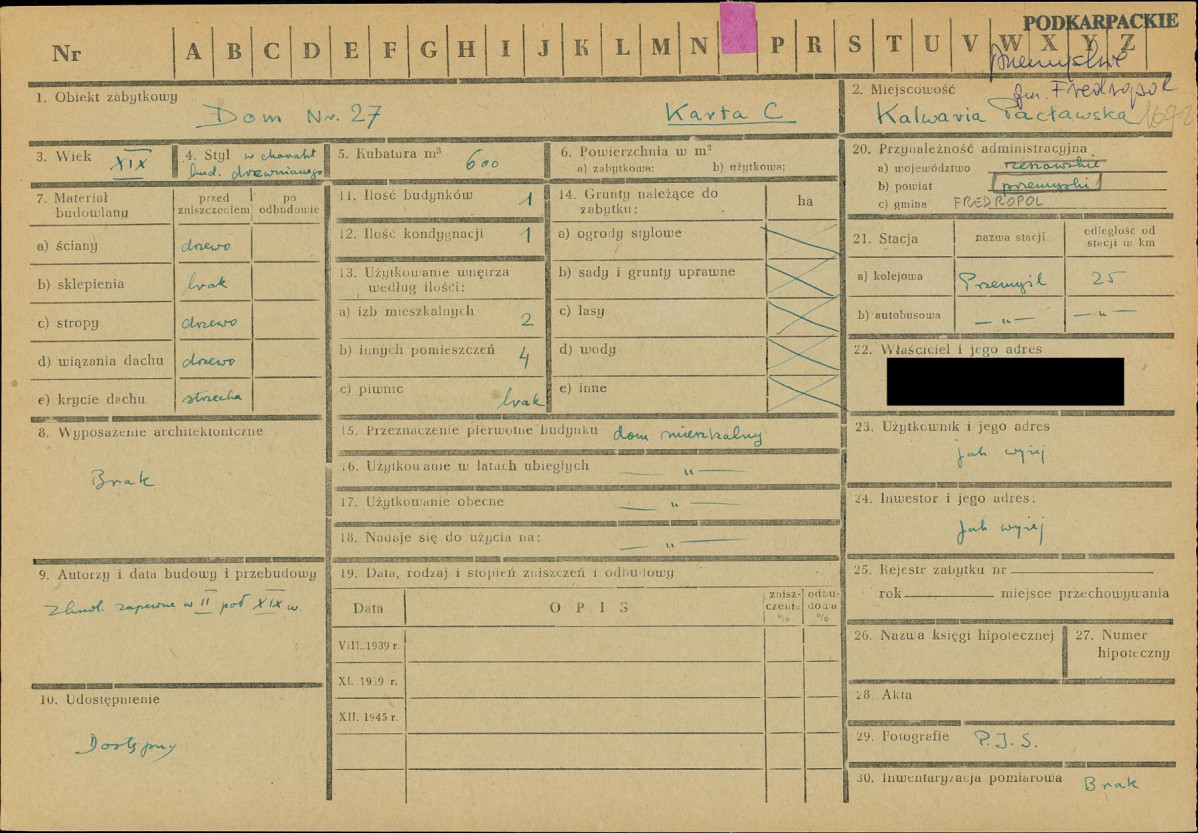 PODKARPACKIE
Nr A B C D E F G H I J K L M N P R S T U V W X Y Z
przemyskie
gm. Fredropol
1. Obiekt zabytkowy
Dom Nr. 27 Karta C
2. Miejscowość
Kalwaria Pacławska
3. Wiek XIX
4. Styl w charakt
bud. drewnianego
5. Kubatura m³ 600
6. Powierzchnia w m²
a) zabytkowa: b) użytkowa:
7. Materiał budowlany
przed zniszczeniem
po odbudowie
a) ściany drzewo
b) sklepienia brak
c) stropy drzewo
d) wiązania dachu drzewo
e) krycie dachu strzecha
8. Wyposażenie architektoniczne
Brak
9. Autorzy i data budowy i przebudowy
Zbud. zapewne w II poł XIX w.
10. Udostępnienie
Dostępny
11. Ilość budynków 1
12. Ilość kondygnacji 1
13. Użytkowanie wnętrza
według ilości:
a) izb mieszkalnych 2
b) innych pomieszczeń 4
c) piwnic brak
14. Grunty należące do
zabytku:
ha
a) ogrody stylowe
b) sady i grunty uprawne
c) lasy
d) wody
e) inne
15. Przeznaczenie pierwotne budynku dom mieszkalny
16. Użytkowanie w latach ubiegłych — „ —
17. Użytkowanie obecne — „ —
18. Nadaje się do użycia na: — „ —
19. Data, rodzaj i stopień zniszczeń i odbudowy
Data OPIS
znisz-
czenia
%
odbu-
dowa
%
VIII. 1939 r.
XI. 1939 r.
XII. 1945 r.
20. Przynależność administracyjna
a) województwo rzeszowskie
b) powiat przemyski
c) gmina FREDROPOL
21. Stacja
nazwa stacji
odległość od
stacji w km
a) kolejowa Przemyśl 25
b) autobusowa — „ — — „ —
22. Właściciel i jego adres
23. Użytkownik i jego adres
jak wyżej
24. Inwestor i jego adres:
jak wyżej
25. Rejestr zabytku nr
rok miejsce przechowywania
26. Nazwa księgi hipotecznej
27. Numer
hipoteczny
28. Akta
29. Fotografie P.J.S.
30. Inwentaryzacja pomiarowa Brak